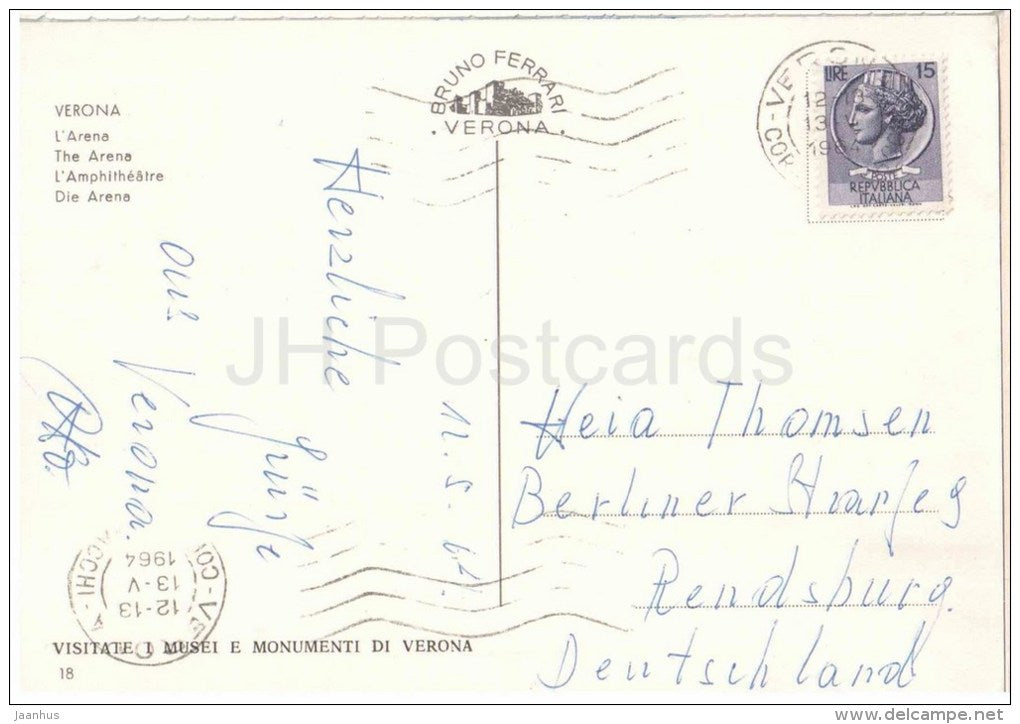 VERONA
L'Arena
The Arena
L'Amphithéâtre
Die Arena
BRUNO FERRARI
. VERONA .
LIRE 15
POSTE
REPVBBLICA
ITALIANA
12-13
13-V
1964
12. 5. 64.
Herzliche
Grüße
aus
Verona.
Heia Thomsen
Berliner Straße 9
Rendsburg.
Deutschland
12-13
13-V
1964
VISITATE I MUSEI E MONUMENTI DI VERONA
18
JH Postcards
Jaanhus
www.delcampe.net